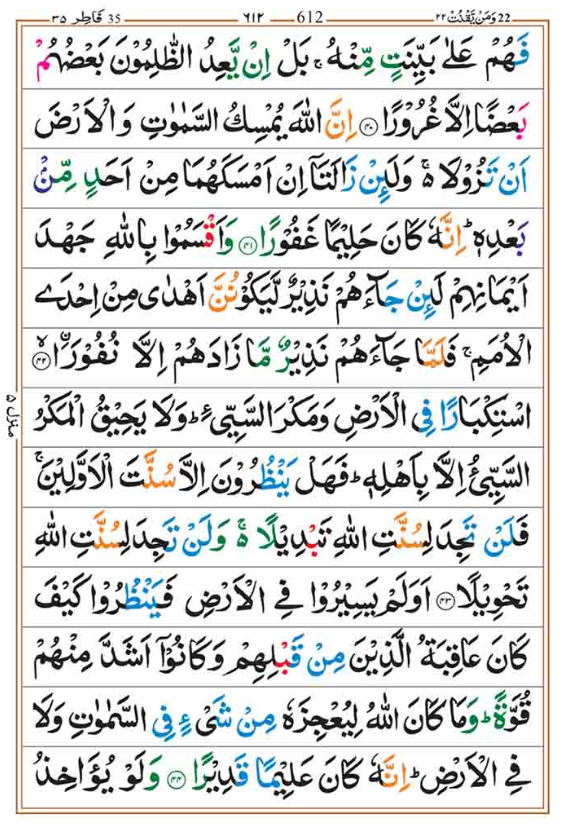 22 وَمَنْ يَّقْنُتْ ٢٢ 612 ٦١٢ 35 فَاطِر ٣٥
فَهُمْ عَلٰى بَيِّنَتٍ مِّنْهُ ۚ بَلْ اِنْ يَّعِدُ الظّٰلِمُوْنَ بَعْضُهُمْ
بَعْضًا اِلَّا غُرُوْرًا ﴿۴۰﴾ اِنَّ اللّٰهَ يُمْسِكُ السَّمٰوٰتِ وَالْاَرْضَ
اَنْ تَزُوْلَا ۚ۬ وَلَئِنْ زَالَتَاۤ اِنْ اَمْسَكَهُمَا مِنْ اَحَدٍ مِّنْۢ
بَعْدِهٖ ؕ اِنَّهٗ كَانَ حَلِيْمًا غَفُوْرًا ﴿۴۱﴾ وَاَقْسَمُوْا بِاللّٰهِ جَهْدَ
اَيْمَانِهِمْ لَئِنْ جَآءَهُمْ نَذِيْرٌ لَّيَكُوْنُنَّ اَهْدٰى مِنْ اِحْدَى
الْاُمَمِ ۚ فَلَمَّا جَآءَهُمْ نَذِيْرٌ مَّا زَادَهُمْ اِلَّا نُفُوْرًا ﴿ۙ۴۲﴾
اسْتِكْبَارًا فِى الْاَرْضِ وَمَكْرَ السَّيِّئِ ؕ وَلَا يَحِيْقُ الْمَكْرُ
السَّيِّئُ اِلَّا بِاَهْلِهٖ ؕ فَهَلْ يَنْظُرُوْنَ اِلَّا سُنَّتَ الْاَوَّلِيْنَ ۚ
فَلَنْ تَجِدَ لِسُنَّتِ اللّٰهِ تَبْدِيْلًا ۚ۬ وَلَنْ تَجِدَ لِسُنَّتِ اللّٰهِ
تَحْوِيْلًا ﴿۴۳﴾ اَوَلَمْ يَسِيْرُوْا فِى الْاَرْضِ فَيَنْظُرُوْا كَيْفَ
كَانَ عَاقِبَةُ الَّذِيْنَ مِنْ قَبْلِهِمْ وَكَانُوْۤا اَشَدَّ مِنْهُمْ
قُوَّةً ؕ وَمَا كَانَ اللّٰهُ لِيُعْجِزَهٗ مِنْ شَىْءٍ فِى السَّمٰوٰتِ وَلَا
فِى الْاَرْضِ ؕ اِنَّهٗ كَانَ عَلِيْمًا قَدِيْرًا ﴿۴۴﴾ وَلَوْ يُؤَاخِذُ
منزل ۵